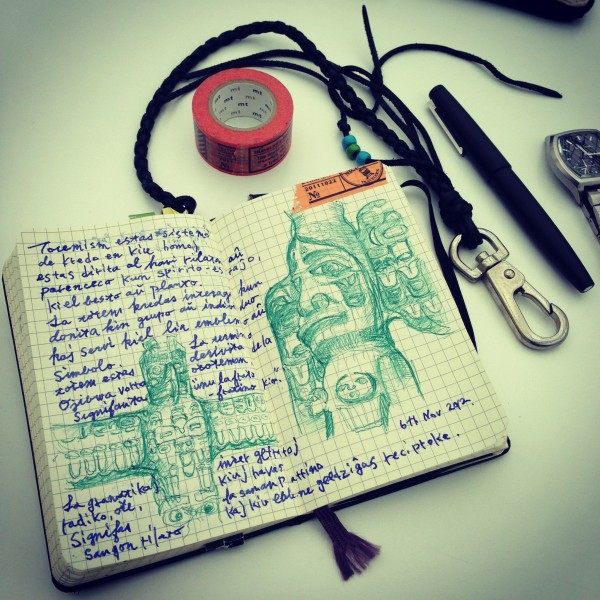 Totemism estas sistemo
de kredo en kiu homoj
estas dirita al havi rilaton aŭ
parenceco kun spirito-estaĵo,
kiel besto aŭ planto.
La totem kredas interagi kun
donita kin grupo aŭ individuo
kaj servi kiel lia emblemo aŭ
Simbolo.
La termino
totem estas
derivita de la
Ojibwa vorto
ototeman
Signifanta
unu la frato
fratino kin."
La gramatikaj
radiko, ote,
Signifas
Sangon rilaro
inter gefratoj
kiuj havas
la saman patrino
kaj kiu eble ne geedziĝas reciproke.
6th Nov. 2012.
20111022
No
mt
mt
mt